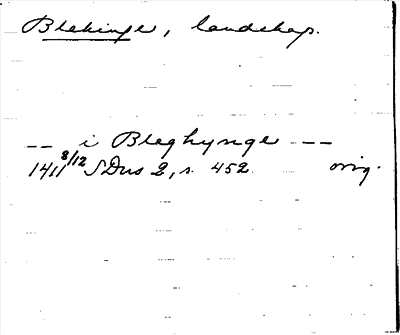 Blekinge, landskap.
-- i Bleghynge ---
1411 8/12 SDns 2, s. 452 orig.